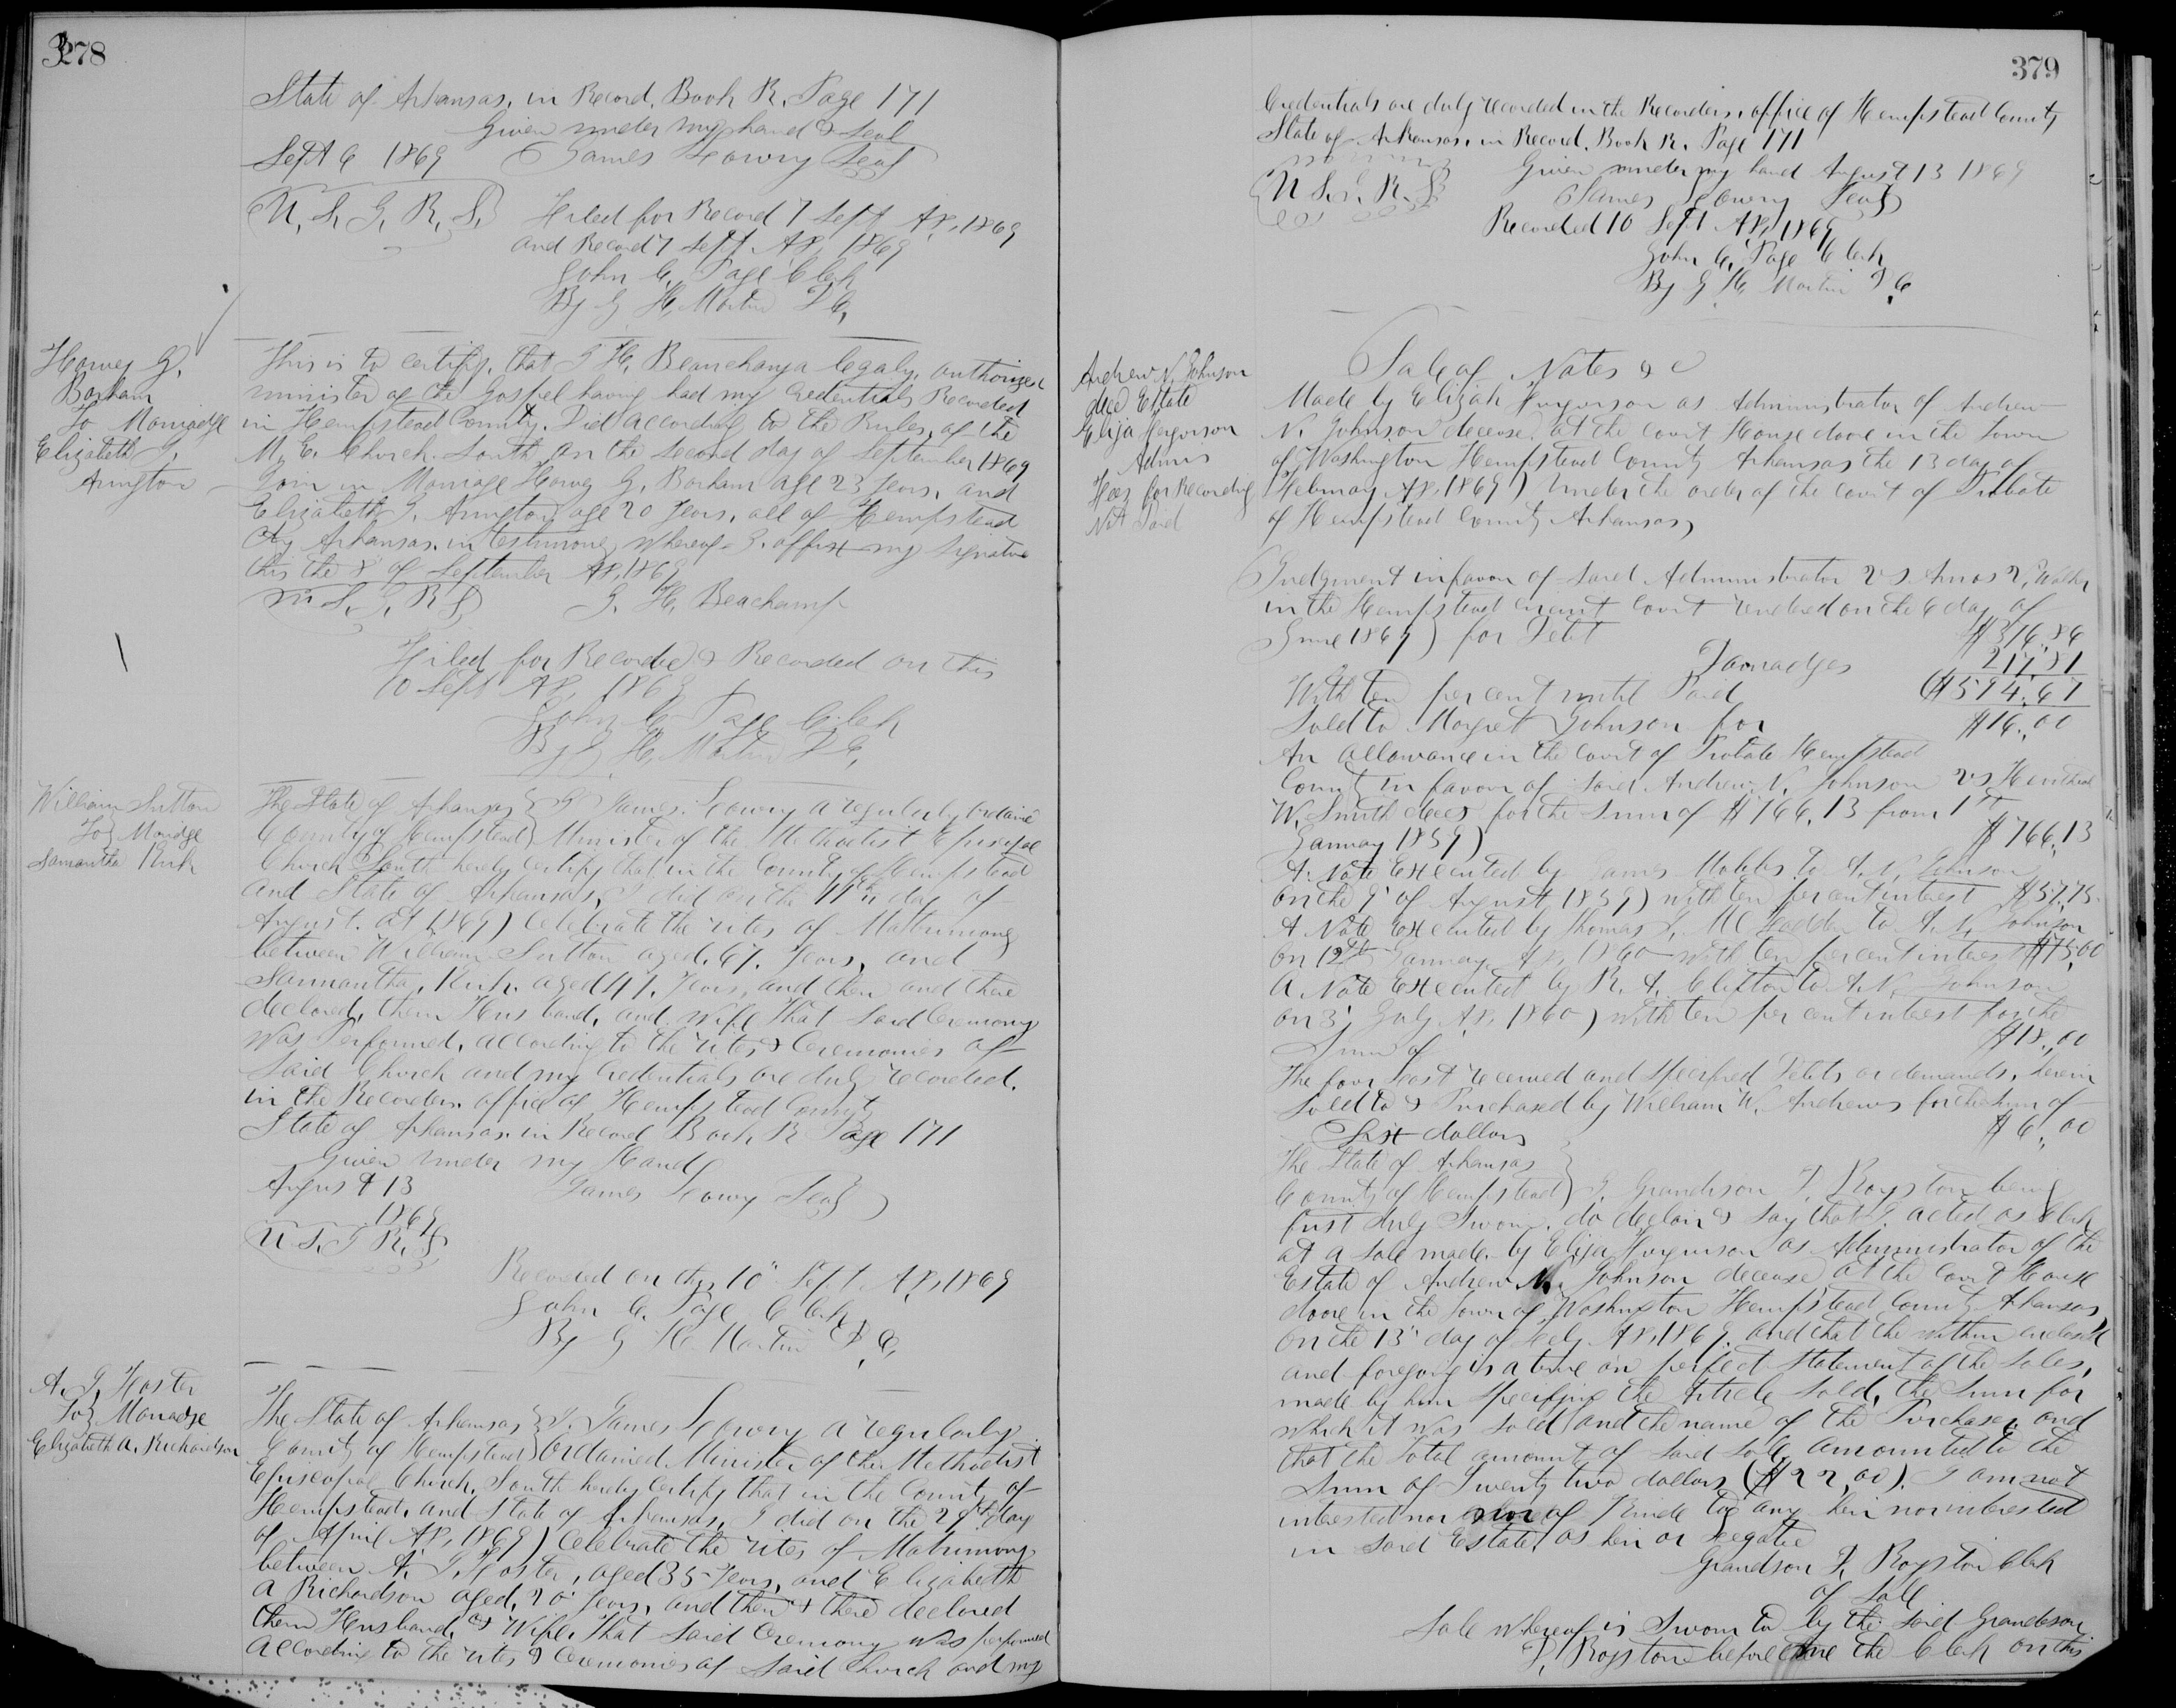 378
State of Arkansas, in Record, Book R, Page 171
Given under my hand & Seal
Sept 6 1869 James Lowry Seal
U. S. I. R. S. Filed for Record 7 Sept AD, 1869
and Record 7 Sept AD, 1869
John C. Page Clerk
By G H, Martin D C,
Harvey G.
Barham
To Marriadge
Elizabeth J.
Arington
This is to certify, that J H, Beauchamp a legaly, authorized
minister of the Gospel having had my Credentials Recorded
in Hempstead County. Did according to the Rules, of the
M, E. Church South, on the Second day of September 1869
Join in Marriage Harvey G. Barham age 23 years, and
Elizabeth J. Arington age 20 years, all of Hempstead
Cty Arkansas. in testimony whereof I. affix my Signature
this the 8" of September AD, 1869
U. S. I. R S J. H. Beachamp
Filed for Recorded & Recorded on this
10 Sept AD, 1869
John C Page Clerk
By G H, Martin D C,
William Sutton
To Mariadge
Samantha Kirk
The State of Arkansas } I James Lowry a regularly ordained
County of Hempstead } Minister of the Methodist Episcopal
Church South hereby certify that in the County of Hempstead
and State of Arkansas, I did on the 11th day of
August. AD 1869) Celebrate the rites of Matrimony
between William Sutton aged, 67. years, and
Sammantha, Kirk. aged 41. years, and then and there
declared, them Husband, and wife That Said Ceremony
was Performed, according to the rites & Ceremonies of
Said Church and my Credentials are duly recorded.
in the Recorders. office of Hempstead County
State of Arkansas. in Record Book R Page 171
Given under my Hand
August 13 James Lowry Seal
1869
U. S. I R. S
Recorded on the 10" Sept AD, 1869
John C. Page Clerk
By G H. Martin D. C.
A. J. Foster
To Mariadge
Elizabeth A. Richardson
The State of Arkansas } I. James Lowry a regularly
County of Hempstead } ordained Minister of the Methodist
Episcopal Church, South hereby Certify that in the County of
Hempstead, and State of Arkansas, I did on the 29th day
of April AD, 1869) Celebrate the rites of Matrimony
between A. J. Foster, aged 35 years, and Elizabeth
A Richardson aged, 20 years, and then & there declared
them Husband, & Wife. That Said Ceremony was performed
according to the rites & Ceremonies of Said Church and my
379
Credentials are duly recorded in the Recorders. office of Hempstead County
State of Arkansas. in Record, Book R. Page 171
Given under my hand August 13 1869
U S. I. R. S James Lowry Seal
Recorded 10 Sept AD, 1869
John C, Page Clerk
By G H, Martin D C
Andrew N, Johnson
decd Estate
Elija Fergurson
Admrs
Fees for Recording
Not Paid
Sale of Notes & c
Made by Elizah Furgerson as Administrator of Andrew
N. Johnson decease, at the Court House doore in the town
of Washington Hempstead County Arkansas the 13 day of
February AD, 1869) under the order of the Court of Probate
of Hempstead County Arkansas,
Judgment in favor of Said Administrator vs Amos Walker
in the Hempstead circuit Court rendered on the 6 day of
June 1867) for Debt $316.86
Damadges 217,81
With ten per cent until Paid ($534.67
Sold to Margret Johnson for $16.,00
An allowance in the Court of Probate Hempstead
County in favour of Said Andrew N, Johnson vs
W, Smith decs for the Sum of $766,13 from 1st
January 1859) $766,13
A. Note Executed by James to A. N, Johnson
on the 9" of August 1859) with ten per cent interest $57,75.
A Note Executed by Thomas J, McFadden to A, N, Johnson
on 12th January AD, 1860 with ten per cent interest $75,00
A. Note Executed by R. A. Clifton to A. N, Johnson
on 3, July AD, 1860) with ten per cent interest for the
Sum of $18.,00
The four last received and Specified Debts or demands,
Sold to & Purchased by William W. Andrews for the Sum of
Six dollars $6.,00
The State of Arkansas }
County of Hempstead } I. Grandison D, Royston being
first duly Sworn, do declair & Say that I. acted as Clerk
at a Sale made by Elija Furgurson as Administrator of the
Estate of Andrew N. Johnson decease at the Court House
doore in the town of Washington Hempstead County Arkansas
on the 13" day of Feby AD, 1869, and that the within enclosed
and foregoing is a true an perfect Statement of the Sales,
made by him Specifying the Article Sold, the Sum for
which it was Sold and the name of the Purchaser, and
that the total amount of Said Sale, amounted to the
Sum of Twenty two dollars ($22,00). I am not
interested nor of Kinde to any heir nor interested
in Said Estate, as heir or Legatee
Grandson D, Royston Clerk
of Sale
Sale whereof is Sworn to by the Said Grandeson
D, Royston before me the Clerk on this